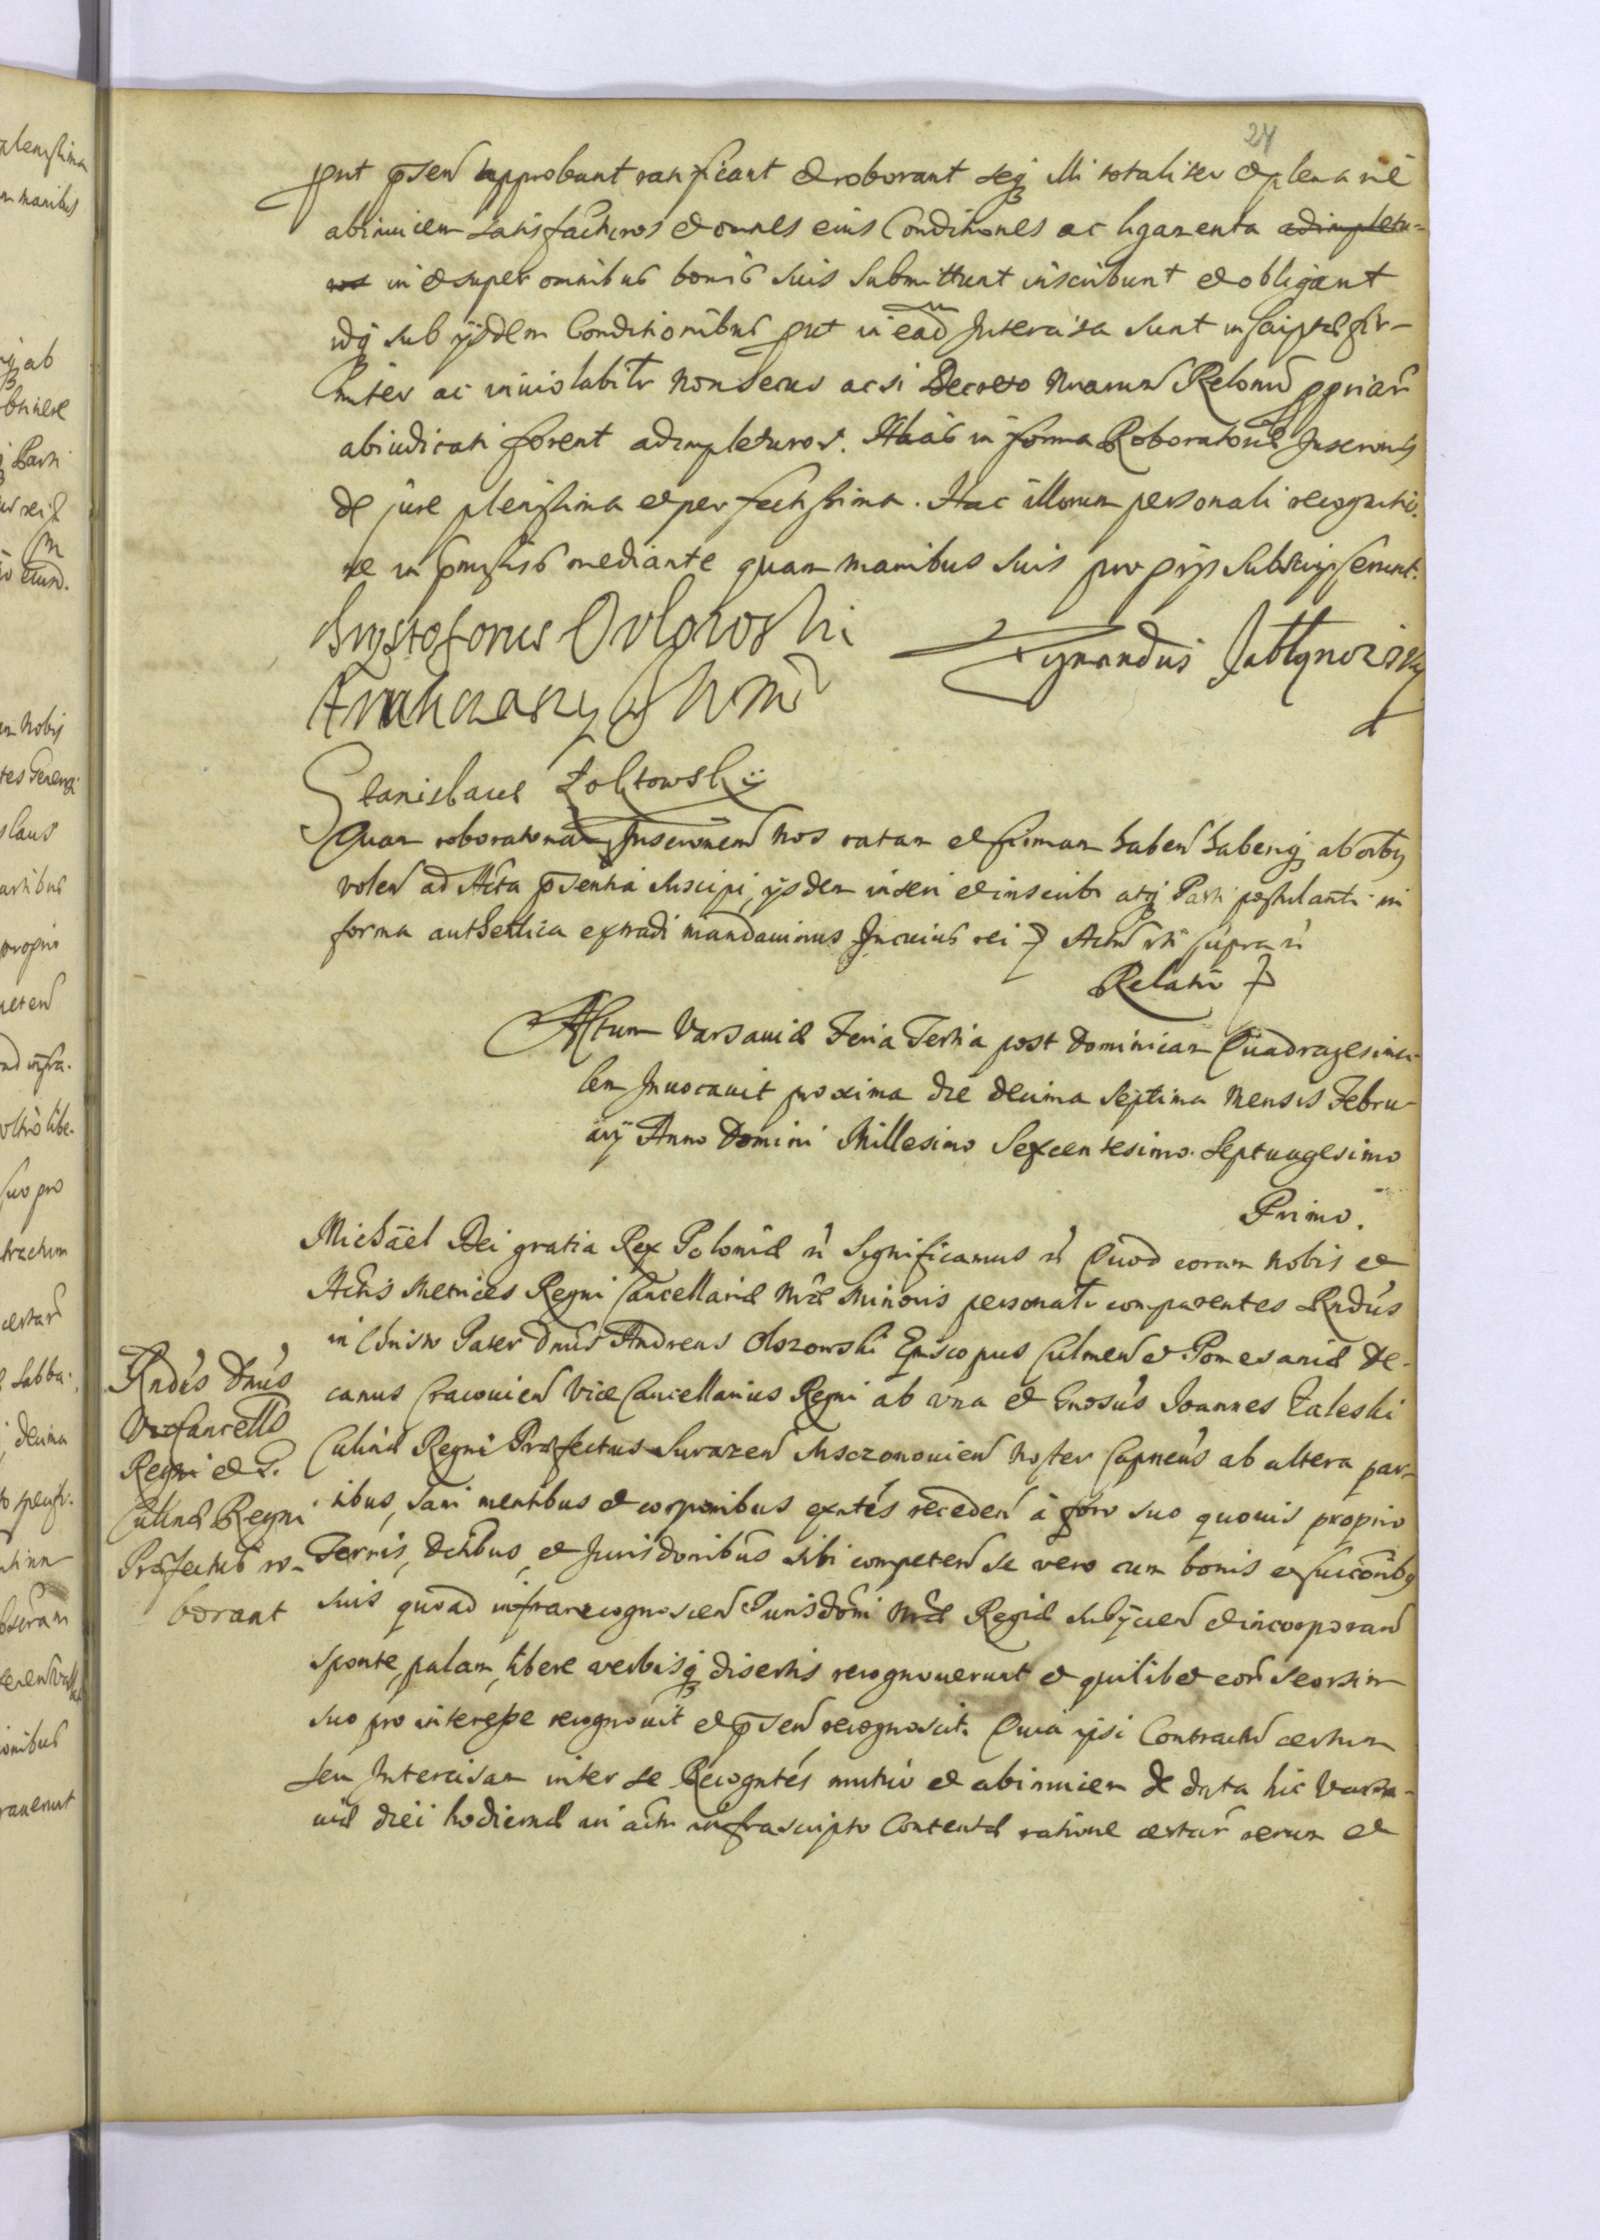 27
put pseñ approbant ratificant et roborant seq illi totaliter et plenariè
abinuicem satisfacturos et omnes eius Conditiones ac ligamenta adimpletu-
ros in et super omnibus bonis suis submittunt inscribunt et obligant
idq sub ijsdem Conditionibus put in ead Intercisa sunt inscriptae fir-
miter ac inuiolabilr non secus ac si Decreto Nrarum Relonu ppriar
abiudicati forent adimpleturos. in forma Roboratoriae Inscronis
de jure plenissima et perfectissima. Hac illorum personali recognitio-
ne in pmissis mediante quam manibus suis proprijs subscripserunt.
Stanislaus Zołtowskij
Quam roboratoriam Inscronem Nos ratam et firmam haberi
voleñ ad Acta psentia suscipi, ijsdem inseri et inscribi atq Parti postulanti in
forma authentica extradi mandauimus Incuius rei Actu uti supra
Relatio
Actum Varsauiae Feria Tertia post Dominicam Quadragesima-
lem Inuocauit proxima die decima septima Mensis Febru-
arij Anno Domini Millesimo Sexcentesimo Septuagesimo
Primo.
Michael Dei gratia Rex Poloniae Significamus Quod coram Nobis et
Actis Metrices Regni Cancellariae Nrae Minoris personalr comparentes Rndus
in Christo Pater Dnus Andreas Olszowski Episcopus Culmeñ et Pomesaniae De-
canus Cracouieñ Vice Cancellarius Regni ab vna et Gnosus Joannes Zaleski
Culinae Regni Praefectus Surazeñ Mszczonouieñ Noster Capneus ab altera par-
tibus, sani mentibus et corporibus exntes recedeñ à foro suo quouis proprio
Terris, et Jurisdonibus sibi competeñ se vero cum bonis et succoribq
suis quoad infrarecognosceñ Jurisdoni Nrae Regiae subijcieñ et incorporañ
sponte, palam, libere verbisq disertis recognouerunt et quilibet eor seorsim
suo pro interesse recognouit et pseñ recognoscit. Quia ipsi Contractu certum
seu Intercisam inter se Recogntes mutuò et abinuicem de data hic Varsa-
uiae diei hodiernae in actu infrascripto Contentae ratione certar rerum et
Rndus Dnus
ViceCancells
Regni et G.
Culinae Regni
Praefectus ro-
borant